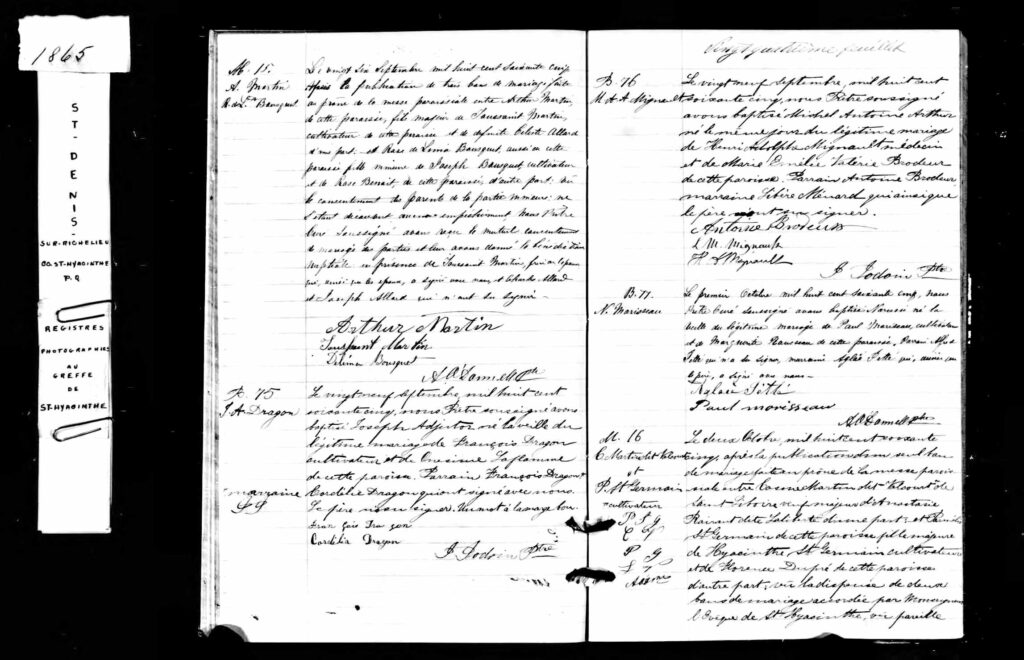 1865
ST-DENIS
SUR-RICHELIEU
CO. ST-HYACINTHE
P.Q
REGISTRES
PHOTOGRAPHIES
AU
GREFFE
DE
ST-HYACINTHE
M. 15.
A. Martin
Le vingt six Septembre mil huit cent soixante cinq
après la publication de trois bans de mariage faite
au prône de la messe paroissiale entre Arthur Martin,
de cette paroisse, fils majeur de Toussaint Martin,
cultivateur de cette paroisse et de défunte Celeste Allard
d'une part. et Rose de Lima Bousquet, aussi de cette
paroisse fille mineure de Joseph Bousquet cultivateur
et de Rose Benoit, de cette paroisse, d'autre part: vu
le consentement des parents de la partie mineure: ne
s'étant découvert aucun empêchement Nous Prêtre
Curé soussigné avons reçu le mutuel consentement
de mariage des parties et leur avons donné la bénédiction
nuptiale en présence de Toussaint Martin, père de l'époux
qui, ainsi que les époux, a signé avec nous et Charles Allard
et Joseph Allard qui n'ont su signer.
Arthur Martin
Toussaint Martin
Délima Bousquet
A O'Donnell Ptre
B. 75
J. A. Dragon
Le vingt neuf Septembre, mil huit cent
soixante cinq, nous Prêtre soussigné avons
baptisé Joseph Adjutor né la veille du
légitime mariage de François Dragon
cultivateur et de Onésime Laflamme
de cette paroisse. Parrain François Dragon
marraine
Cordélie Dragon qui ont signé avec nous.
Le père n'a su signer. Un mot à la marge bon
François Dragon
Cordélia Dragon
J. Jodoin Ptre
Vingt quatrième feuillet
B. 76
M. A. A. Mignault
Le vingt neuf Septembre, mil huit cent
soixante cinq, nous Prêtre soussigné
avons baptisé Michel Antoine Arthur
né le même jour du légitime mariage
de Henri Adolphe Mignault médecin
et de Marie Emélie Valérie Brodeur
de cette paroisse. Parrain Antoine Brodeur,
marraine Libère Ménard qui ainsi que
le père ont su signer.
Antoine Brodeur
L M. Mignault
H. A Mignault
J. Jodoin Ptre
B. 77.
N. Marisseau
Le premier Octobre mil huit cent soixante cinq, nous
Prêtre Curé soussigné avons baptisé Narcisse né la
veille du légitime mariage de Paul Marisseau cultivateur
et de Marguerite Rousseau de cette paroisse, Parrain
qui n'a su signer, marraine Aglaé qui, ainsi que
le père, a signé avec nous.
Aglaée
Paul morisseau
A O'Donnell Ptre
M. 16
C. Martin
et
P. St Germain
cultivateur
Le deux Octobre, mil huit cent soixante
cinq, après la publication d'un seul ban
de mariage faite au prône de la messe parois
siale entre Cosme Martin dit
Saint Liboire veuf majeur d'Anastasie
d'une part; et
St Germain de cette paroisse fille majeure
de Hyacinthe St Germain cultivateur
et de Florence Dupré de cette paroisse
d'autre part; vu la dispense de deux
bans de mariage accordée par Monseigneur
l'Evêque de St Hyacinthe, vu pareille